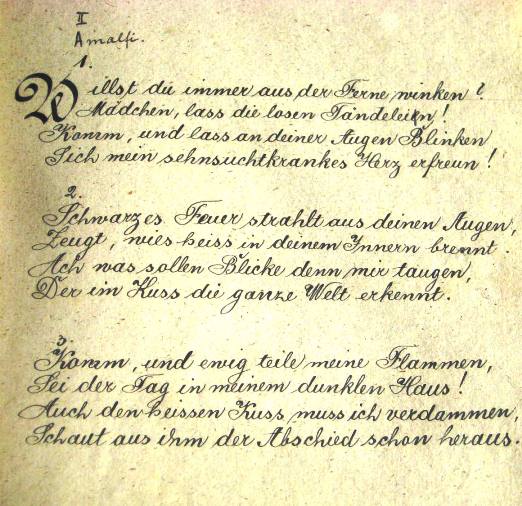 II
Amalfi.
1.
Willst du immer aus der Ferne winken?
Mädchen, lass die losen Tändeleien!
Komm, und lass an deiner Augen Blinken
Sich mein sehnsuchtkrankes Herz erfreun!
2.
Schwarzes Feuer strahlt aus deinen Augen,
Zeugt, wies heiss in deinem Innern brennt
Ach was sollen Blicke denn mir taugen,
Der im Kuss die ganze Welt erkennt.
3
Komm, und ewig teile meine Flammen,
Sei der Tag in meinem dunklen Haus!
Auch den heissen Kuss muss ich verdammen,
Schaut aus ihm der Abschied schon heraus.